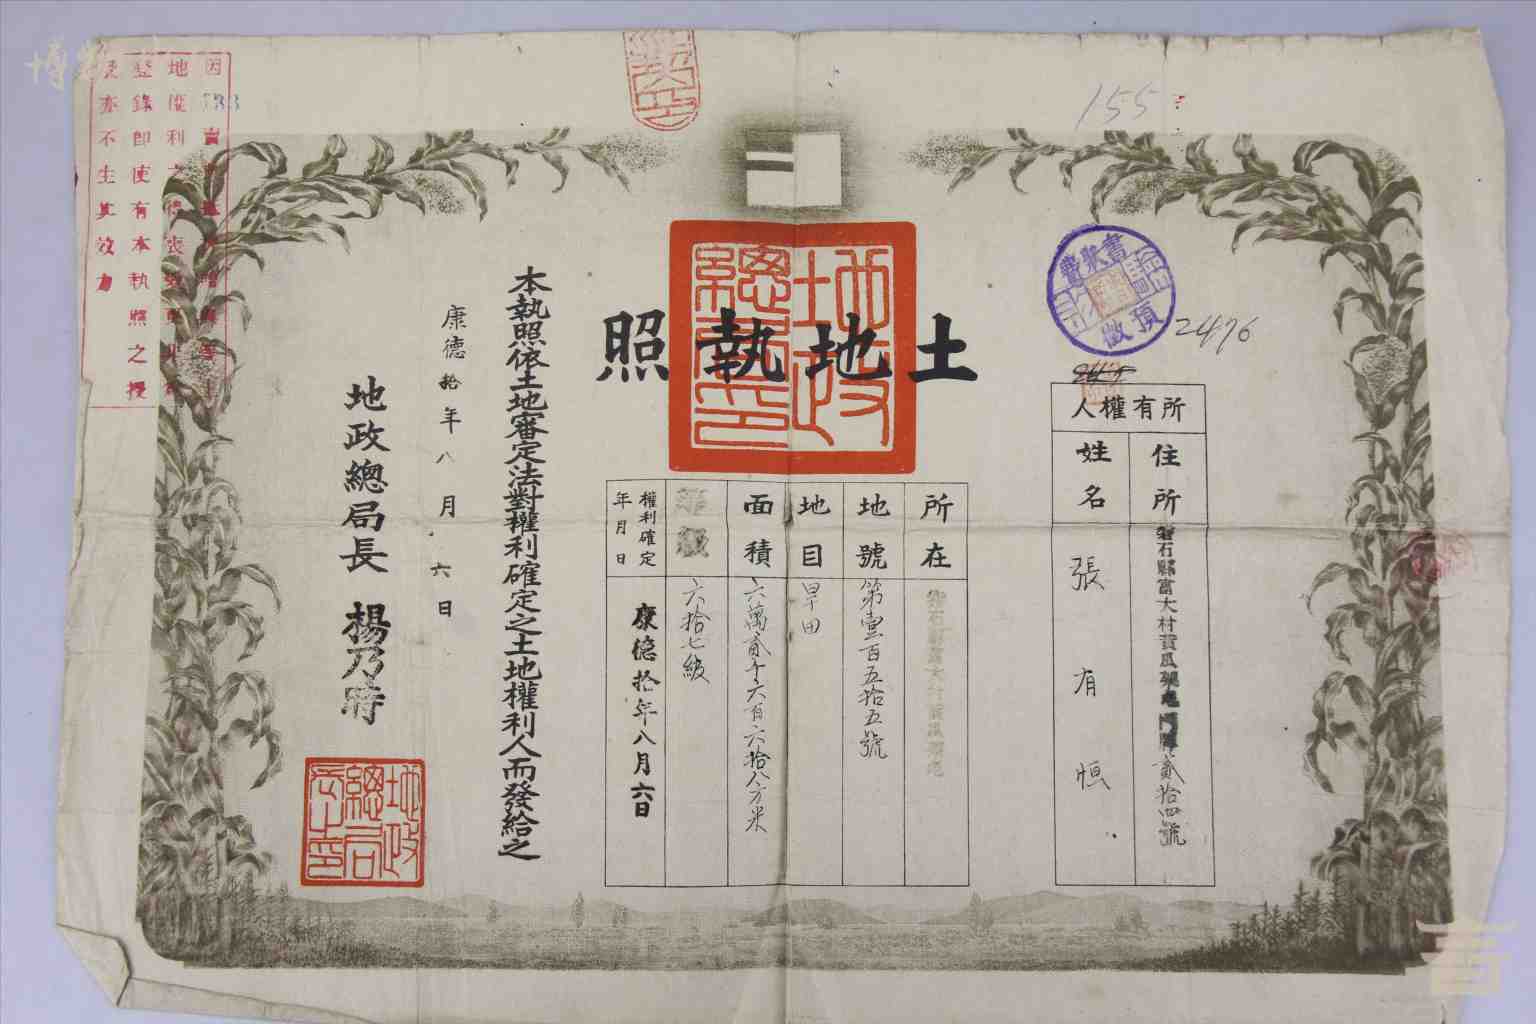 土地執照
155
2476
書狀費
預徵
所有權人
住所
磐石縣富大村黃瓜架屯門牌貳拾四號
姓名
張有恒
所在
磐石縣富大村黃瓜架屯
地號
第壹百五拾五號
地目
旱田
面積
六萬貳千六百六拾八方米
等級
六拾七級
權利確定年月日
康德拾年八月六日
本執照依土地審定法對權利確定之土地權利人而發給之
康德拾年八月六日
地政總局長 楊乃時
地政總局印
地政總局長印
地
登錄即使有本執照之授
受亦不生其效力